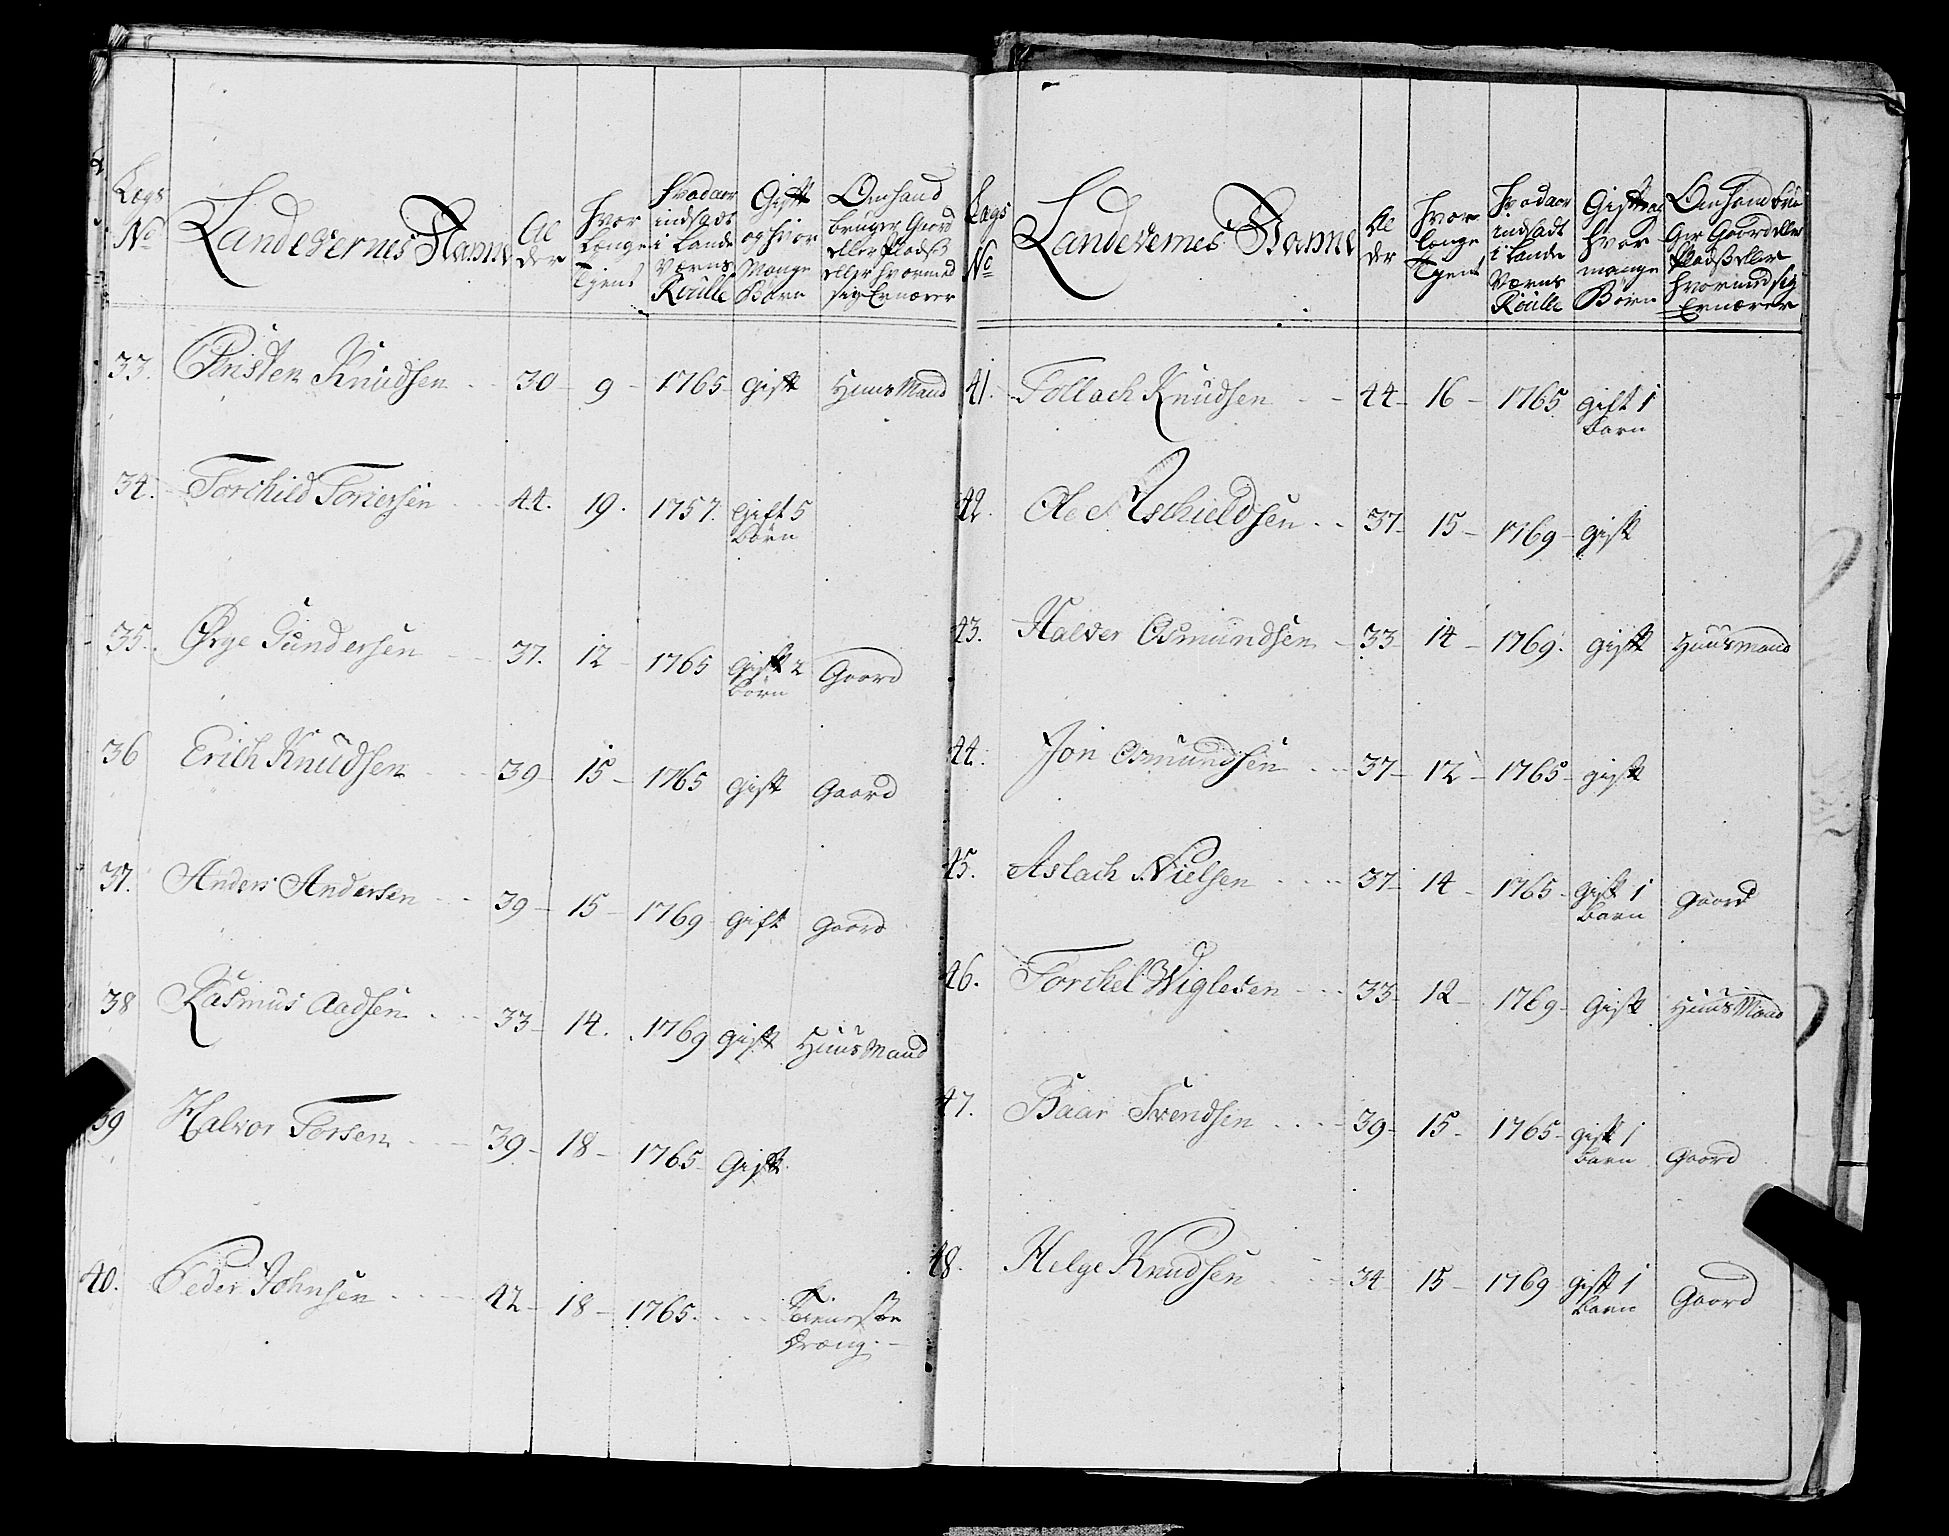 Lægs No | Landevernes Nafne | Alder | Hvor Længe Tient | Hvad aar indsadt i Lande Værns Roulle | Gift og hvor Mange Børn | Om hand bruger Gaard eller Pladss eller hvormed sig Ernærer
33. Christen Knudsen 30 - 9 - 1765 gift HuusMand
34. Torchild Toriersen 44. 19. 1757. gift 5 Børn
35. Ørge Gundersen 37. 12 - 1765 gift 2 Børn Gaard
36 Erich Knudsen 39 - 15 - 1765 gift Gaard
37. Anders Andersen 39 - 15 - 1769 gift Gaard
38 Rasmus Aadsen 33 - 14. 1769 gift HuusMand
39 Halvor Torsen 39 - 18 - 1765 Gift
40. Peder Johnsen 42 - 18 - 1765. Tieneste Dræng
Lægs No | Landevernes Nafne | Alder | Hvor længe Tient | Hvad aar indsadt i Lande Værns Roulle | Gift og hvor mange Børn | Om hand bruger Gaard eller Pladss eller hvormed sig Ernærer
41. Tollach Knudsen 44 - 16 - 1765 gift 1 Barn
42. Ole Aschieldsen 37 - 15 - 1769 - gift
43. Halver Osmundsen 33 - 14 - 1769. gift Huusmand
44. Jon Osmundsen 37 - 12 - 1765 - gift
45. Aslach Nielsen 37 - 14 - 1765 - gift 1 Barn Gaard
46. Torchel Wiglesen 33 - 12 - 1769 - Gift HuusMand
47. Baar Svendsen 39 - 15 - 1765 - gift 1 Barn Gaard
48. Helge Knudsen 34 15 - 1769 gift 1 Barn Gaard